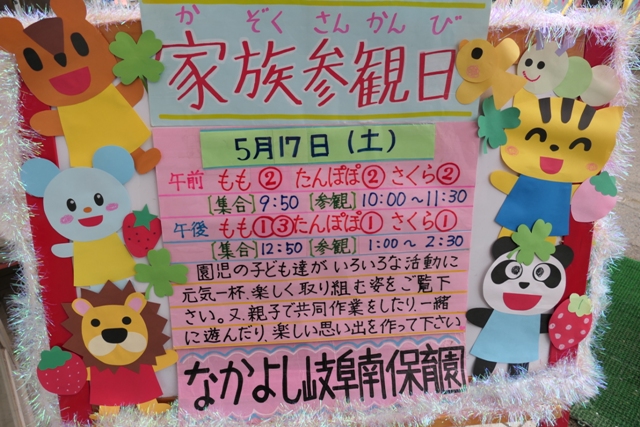 かぞくさんかんび
家族参観日
5月17日(土)
午前 もも② たんぽぽ② さくら②
[集合] 9:50 [参観] 10:00〜11:30
午後 もも①③ たんぽぽ① さくら①
[集合] 12:50 [参観] 1:00〜2:30
園児の子ども達が、いろいろな活動に
元気一杯、楽しく取り組む姿をご覧下
さい。又、親子で共同作業をしたり、一緒
に遊んだり、楽しい思い出を作って下さい
なかよし岐阜南保育園